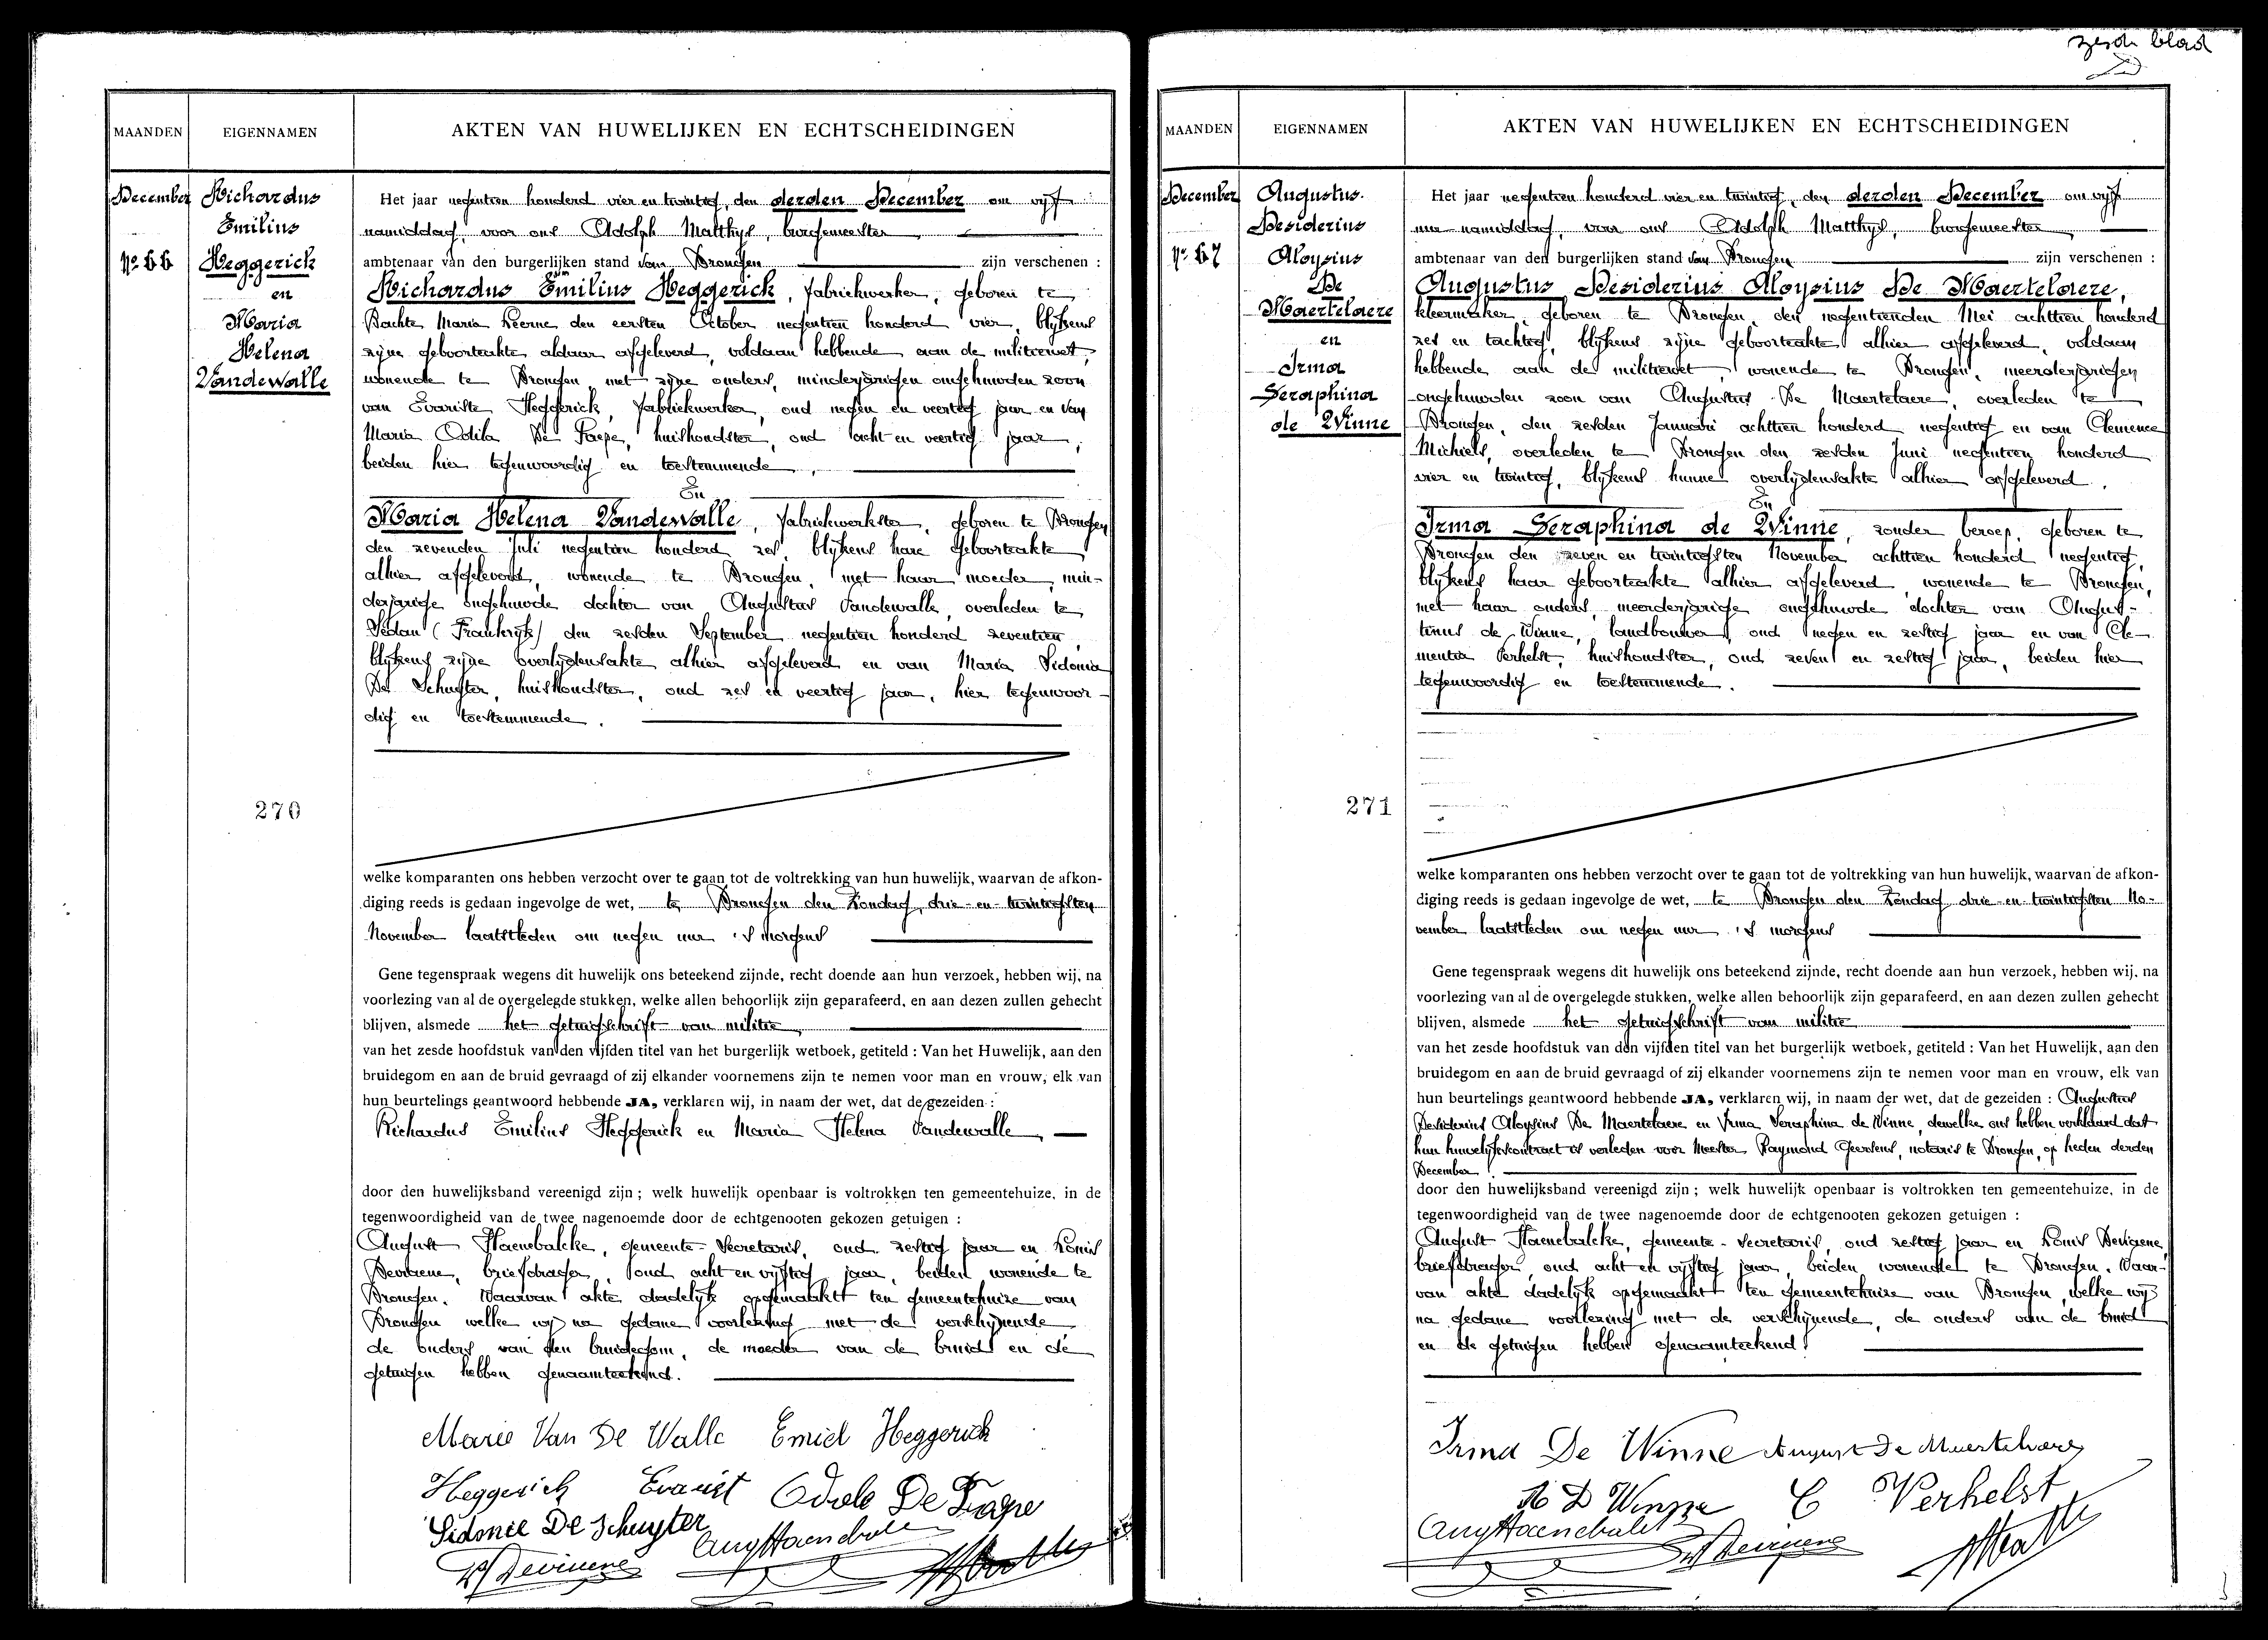 zesde blad
MAANDEN
EIGENNAMEN
AKTEN VAN HUWELIJKEN EN ECHTSCHEIDINGEN
December
No 66
Richardus
Emilius
Heggerick
en
Maria
Helena
Vandewalle
270
Het jaar negentien honderd vier en twintig, den derden December om vijf
namiddag, voor ons Adolph Matthys, burgemeester,
ambtenaar van den burgerlijken stand van Drongen zijn verschenen :
Richardus Emilius Heggerick, fabriekwerker, geboren te
Bachte Maria Leerne den eersten October negentien honderd vier, blijkens
zijne geboorteakte aldaar afgeleverd, voldaan hebbende aan de militiewet,
wonende te Drongen, met zijne ouders, minderjarigen ongehuwden zoon
van Evariste Heggerick, fabriekwerker, oud negen en veertig jaar en van
Maria Odila De Paepe, huishoudster, oud acht en veertig jaar,
beiden hier tegenwoordig en toestemmende,
En
Maria Helena Vandewalle, fabriekwerkster, geboren te Drongen
den zevenden Juli negentien honderd zes, blijkens hare geboorteakte
alhier afgeleverd, wonende te Drongen, met haar moeder, min-
derjarige ongehuwde dochter van Augustus Vandewalle, overleden te
Sedan (Frankrijk) den zesden September negentien honderd zeventien
blijkens zijne overlijdensakte alhier afgeleverd en van Maria Sidonia
De Schuyter, huishoudster, oud zes en veertig jaar, hier tegenwoor-
dig en toestemmende.
welke komparanten ons hebben verzocht over te gaan tot de voltrekking van hun huwelijk, waarvan de afkon-
diging reeds is gedaan ingevolge de wet, te Drongen den Zondag, drie-en-twintigsten
November laatstleden om negen uur 's morgens
Gene tegenspraak wegens dit huwelijk ons beteekend zijnde, recht doende aan hun verzoek, hebben wij, na
voorlezing van al de overgelegde stukken, welke allen behoorlijk zijn geparafeerd, en aan dezen zullen gehecht
blijven, alsmede het getuigschrift van militie
van het zesde hoofdstuk van den vijfden titel van het burgerlijk wetboek, getiteld : Van het Huwelijk, aan den
bruidegom en aan de bruid gevraagd of zij elkander voornemens zijn te nemen voor man en vrouw, elk van
hun beurtelings geantwoord hebbende JA, verklaren wij, in naam der wet, dat de gezeiden :
Richardus Emilius Heggerick en Maria Helena Vandewalle,
door den huwelijksband vereenigd zijn ; welk huwelijk openbaar is voltrokken ten gemeentehuize, in de
tegenwoordigheid van de twee nagenoemde door de echtgenooten gekozen getuigen :
August Haenebalcke, gemeente-secretaris, oud zestig jaar en Louis
Devriene, briefdrager, oud acht en vijftig jaar, beiden wonende te
Drongen. Waarvan akte dadelijk opgemaakt ten gemeentehuize van
Drongen welke wij na gedane voorlezing met de verschijnende
de ouders van den bruidegom, de moeder van de bruid en de
getuigen hebben genaamteekend.
Marie Van De Walle Emiel Heggerick
Heggerick Evarist Odile De Paepe
Sidonie De Schuyter Aug Haenebalcke
MAANDEN
EIGENNAMEN
AKTEN VAN HUWELIJKEN EN ECHTSCHEIDINGEN
December
No 67
Augustus
Desiderius
Aloysius
De
Maertelaere
en
Irma
Seraphina
de Winne
271
Het jaar negentien honderd vier en twintig, den derden December om vijf
uur namiddag, voor ons Adolph Matthys, burgemeester,
ambtenaar van den burgerlijken stand van Drongen zijn verschenen :
Augustus Desiderius Aloysius De Maertelaere,
kleermaker, geboren te Drongen, den negentienden Mei achttien honderd
zes en tachtig, blijkens zijne geboorteakte alhier afgeleverd, voldaan
hebbende aan de militiewet, wonende te Drongen, meerderjarigen
ongehuwden zoon van Augustus De Maertelaere, overleden te
Drongen, den zesden Januari achttien honderd negentig en van Clemence
Michiels, overleden te Drongen den zesden Juni negentien honderd
vier en twintig, blijkens hunne overlijdensakte alhier afgeleverd.
En
Irma Seraphina de Winne, zonder beroep, geboren te
Drongen den zeven en twintigsten November achttien honderd negentig,
blijkens haar geboorteakte alhier afgeleverd, wonende te Drongen,
met haar ouders, meerderjarige ongehuwde dochter van Augus-
tinus de Winne, landbouwer, oud negen en zestig jaar en van Cle-
mentia Verhelst, huishoudster, oud zeven en zestig jaar, beiden hier
tegenwoordig en toestemmende.
welke komparanten ons hebben verzocht over te gaan tot de voltrekking van hun huwelijk, waarvan de afkon-
diging reeds is gedaan ingevolge de wet, te Drongen den Zondag drie-en-twintigsten No-
vember laatstleden om negen uur 's morgens
Gene tegenspraak wegens dit huwelijk ons beteekend zijnde, recht doende aan hun verzoek, hebben wij, na
voorlezing van al de overgelegde stukken, welke allen behoorlijk zijn geparafeerd, en aan dezen zullen gehecht
blijven, alsmede het getuigschrift van militie
van het zesde hoofdstuk van den vijfden titel van het burgerlijk wetboek, getiteld : Van het Huwelijk, aan den
bruidegom en aan de bruid gevraagd of zij elkander voornemens zijn te nemen voor man en vrouw, elk van
hun beurtelings geantwoord hebbende JA, verklaren wij, in naam der wet, dat de gezeiden : Augustus
Desiderius Aloysius De Maertelaere en Irma Seraphina de Winne, dewelke ons hebben verklaard dat
hun huwelijkscontract is verleden voor Meester Raymond Geersens, notaris te Drongen, op heden derden
December.
door den huwelijksband vereenigd zijn ; welk huwelijk openbaar is voltrokken ten gemeentehuize, in de
tegenwoordigheid van de twee nagenoemde door de echtgenooten gekozen getuigen :
August Haenebalcke, gemeente-secretaris, oud zestig jaar en Louis Devriene,
briefdrager, oud acht en vijftig jaar, beiden wonende te Drongen. Waar-
van akte dadelijk opgemaakt ten gemeentehuize van Drongen, welke wij
na gedane voorlezing met de verschijnende, de ouders van de bruid
en de getuigen hebben genaamteekend.
Irma De Winne August De Maertelaere
A D Winne C Verhelst
Aug Haenebalcke